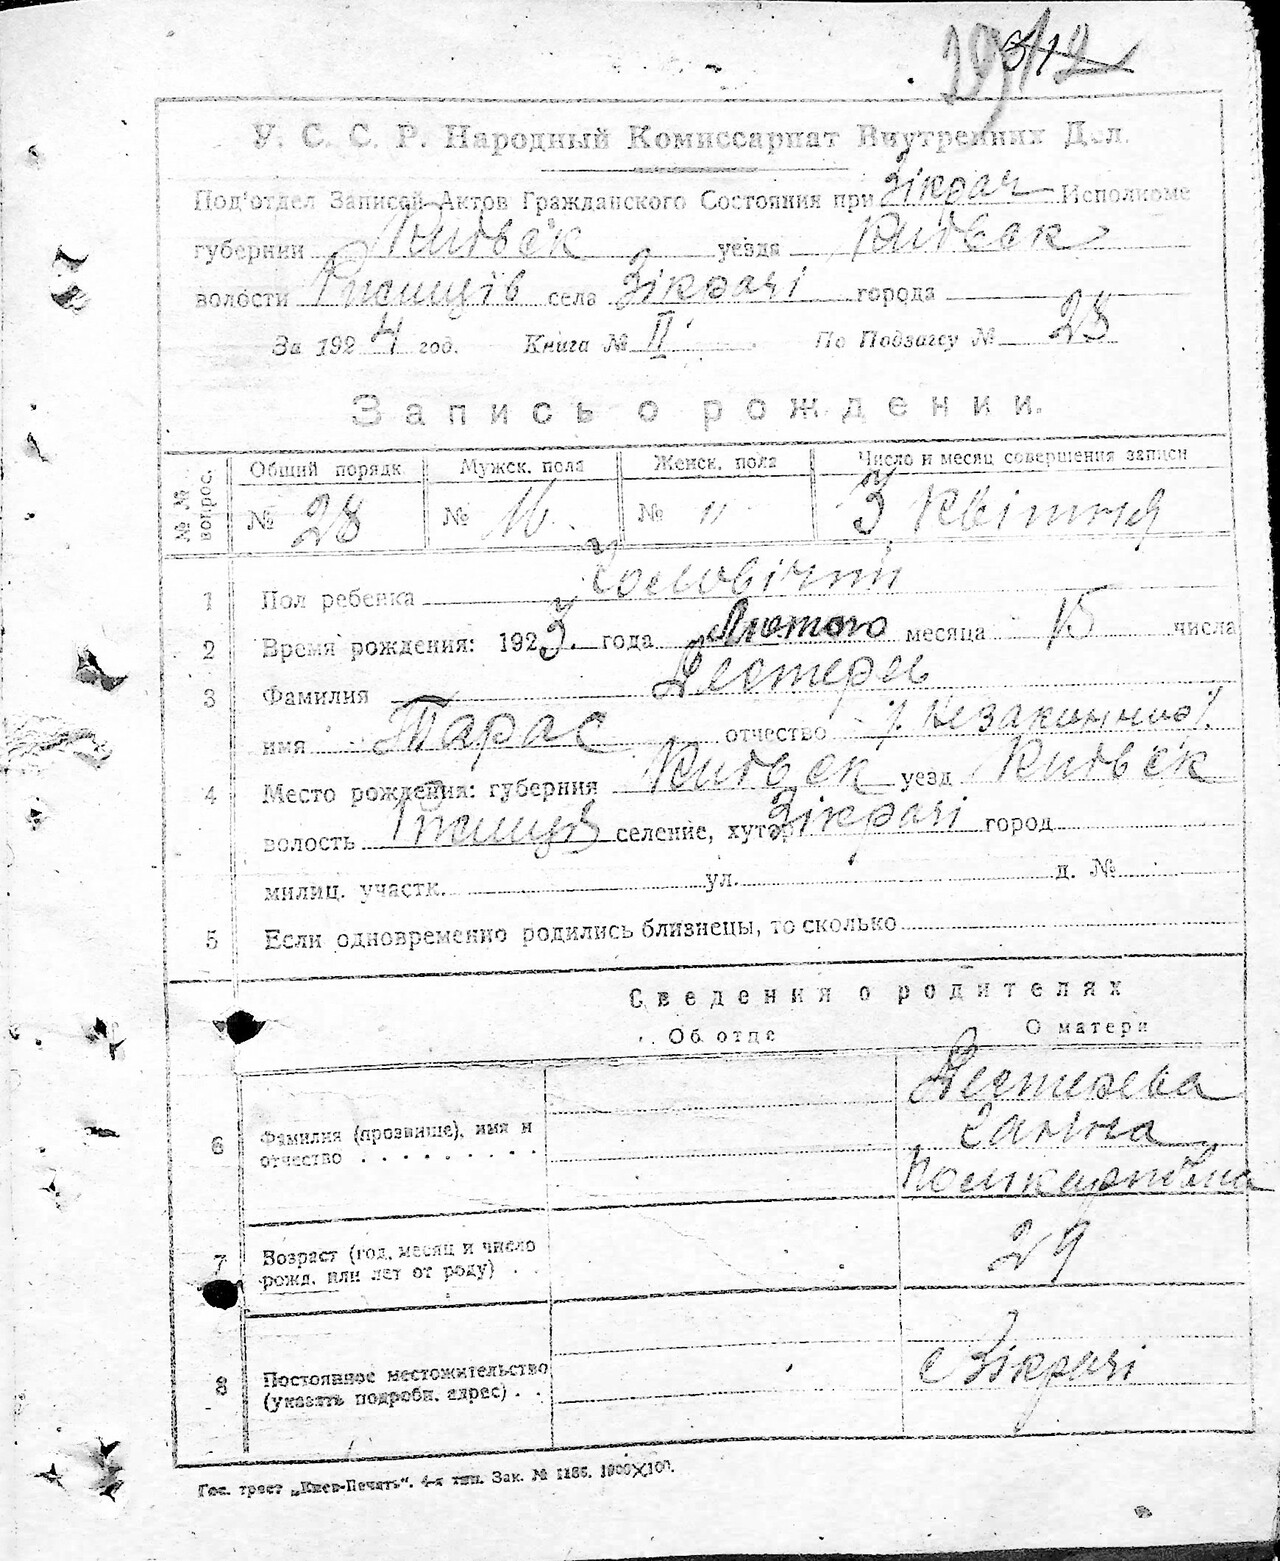 312
У. С. С. Р. Народный Комиссариат Внутренних Дел.
Под'отдел Записей Актов Гражданского Состояния при Зікрач Исполкоме
губернии Київск уезда Київск
волости Ржищів села Зікрачі города
За 1924 год. Книга № II По Подзагсу № 28
Запись о рождении.
№ № вопрос. Общий порядк. Мужск. пола Женск. пола Число и месяц совершения записи
№ 28 № 16 № " 3 Квітня
1 Пол ребенка Чоловічий
2 Время рождения: 1923 года Лютого месяца 15 числа
3 Фамилия Дегтерев
имя Тарас отчество /. Незаконний /.
4 Место рождения: губерния Київск уезд Київск
волость Ржищів селение, хутор Зікрачі город
милиц. участк. ул. д. №
5 Если одновременно родились близнецы, то сколько
Сведения о родителях
Об отце О матери
6 Фамилия (прозвище), имя и отчество Дегтерева
Поликарповна
7 Возраст (год, месяц и число рожд. или лет от роду) 29
8 Постоянное местожительство (указать подробн. адрес) с Зікрачі
Гос. трест „Киев-Печать". 4-я тип. Зак. № 1186. 1000×100.